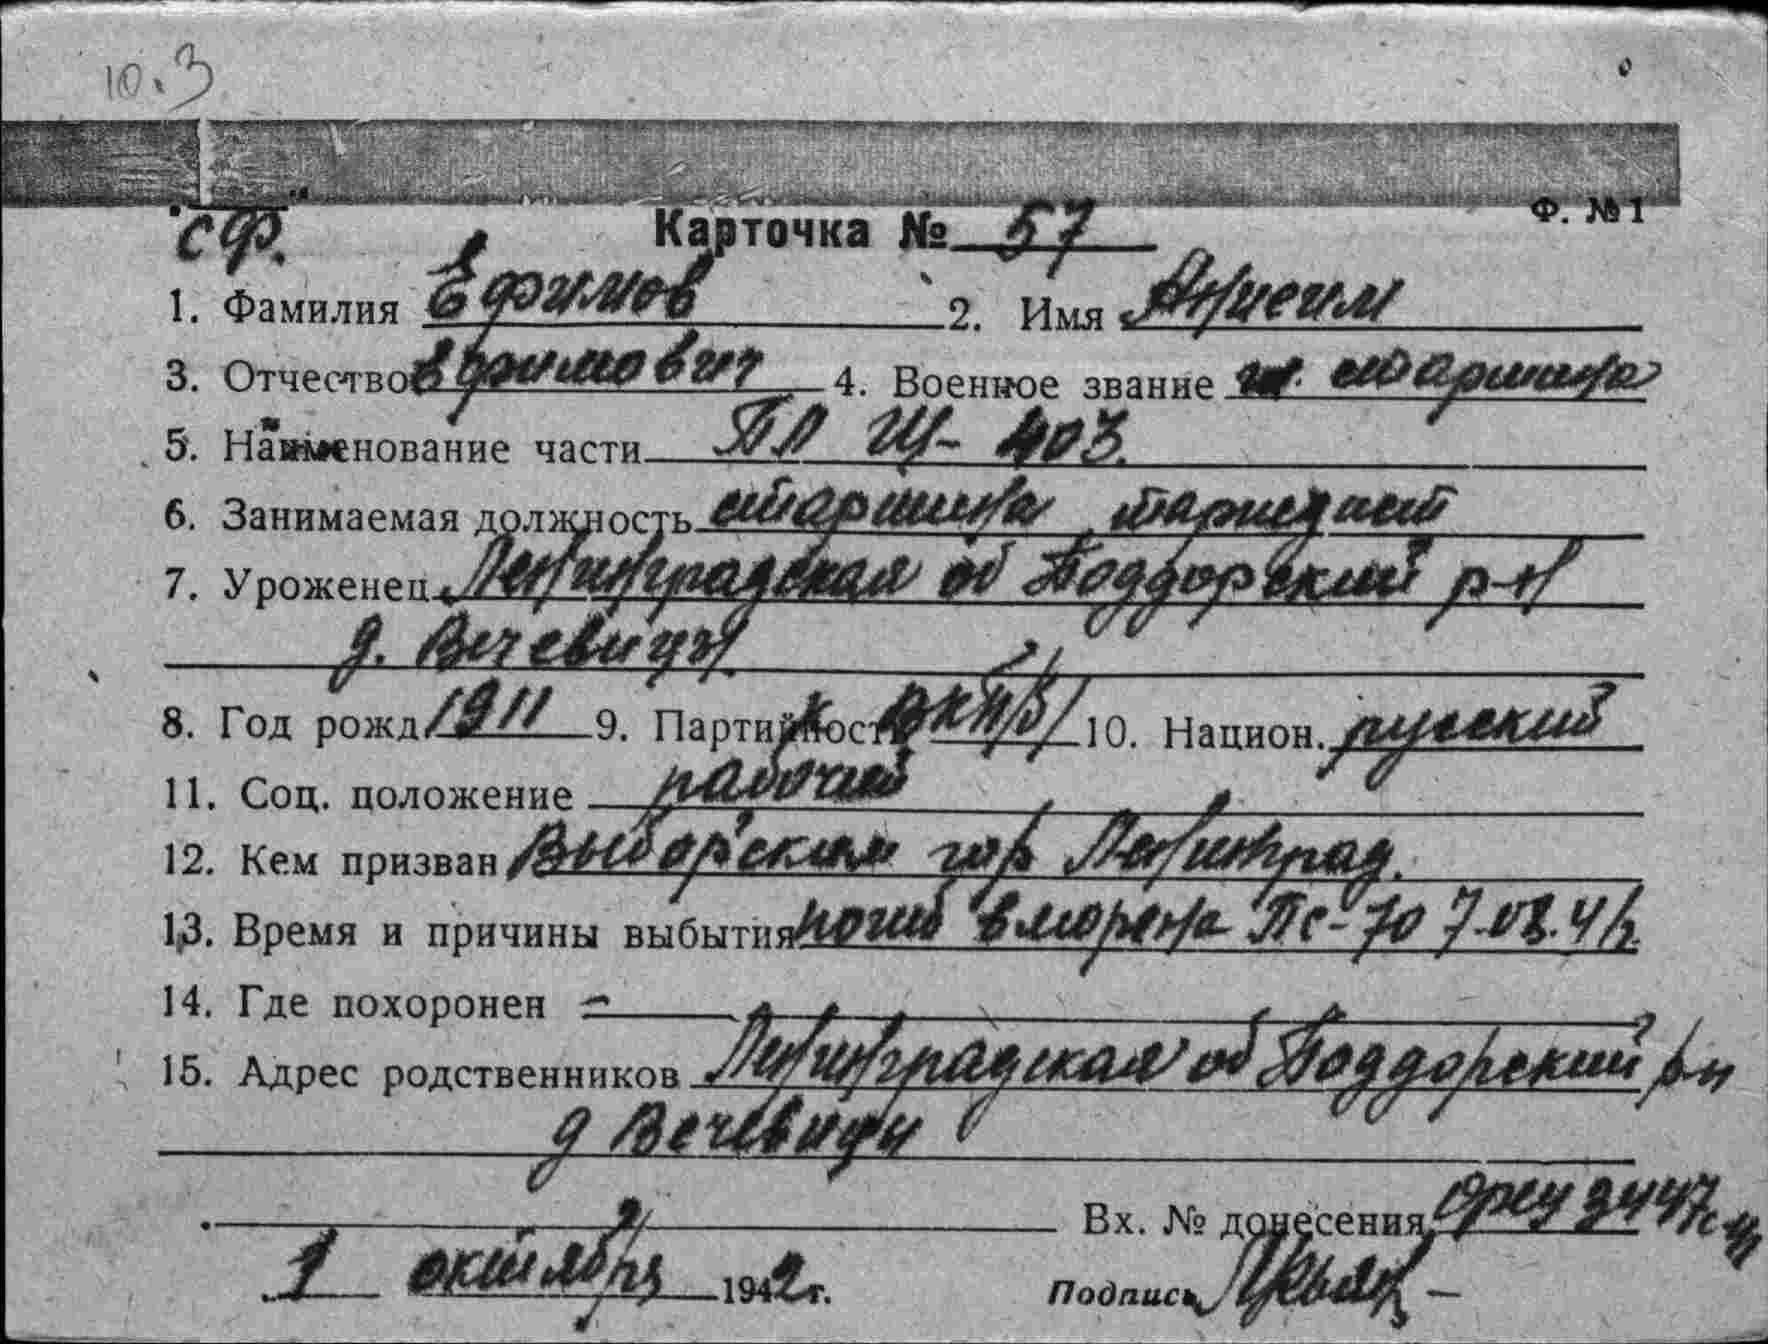 10.3
Ф. №1
СФ. Карточка № 57
1. Фамилия Ефимов 2. Имя Анисим
3. Отчество Ефимович 4. Военное звание гл. старшина
5. Наименование части ПЛ Щ-403.
6. Занимаемая должность старшина торпедист
7. Уроженец Ленинградская об Поддорский р-н
д. Вечевицы
8. Год рожд 1911 9. Партийность ВКП/б/ 10. Национ. русский
11. Соц. положение рабочий
12. Кем призван Выборским гор Ленинград.
13. Время и причины выбытия погиб в море на ПС-70 7.08.42
14. Где похоронен -
15. Адрес родственников Ленинградская об Поддорский р-н
д Вечевицы
Вх. № донесения 9447с
1 октября 1942 г. Подпись